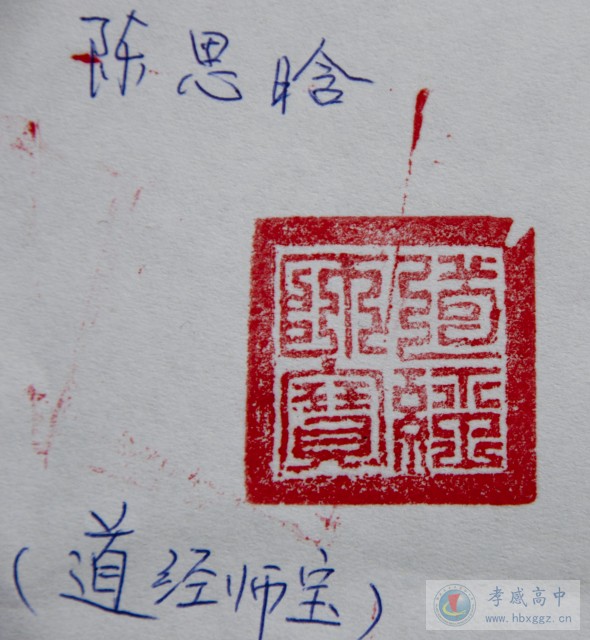 陈思晗
道經師寶
（道经师宝）
孝感高中
www.hbxggz.cn